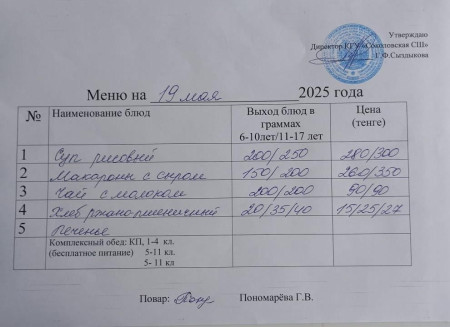 Утверждаю
Директор КГУ «Соколовская СШ»
Г.Ф.Сыздыкова
Меню на 19 мая 2025 года
№ Наименование блюд Выход блюд в граммах 6-10лет/11-17 лет Цена (тенге)
1 Суп рисовый 200/250 280/300
2 Макароны с сыром 150/200 260/350
3 Чай с молоком 200/200 90/90
4 Хлеб ржано-пшеничный 20/35/40 15/25/27
5 Печенье
Комплексный обед: КП, 1-4 кл.
(бесплатное питание) 5-11 кл.
5- 11 кл
Повар: Пономарёва Г.В.